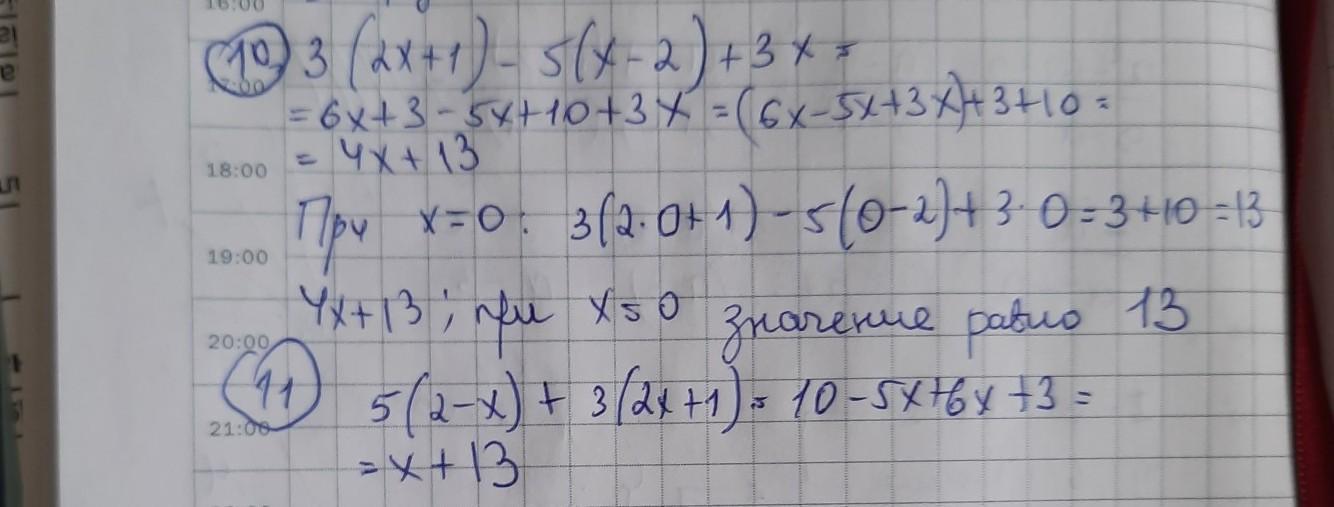 16:00
10 3(2x+1) - 5(x-2) + 3x =
= 6x+3-5x+10+3x = (6x-5x+3x)+3+10 =
= 4x+13
18:00
При x=0: 3(2·0+1) - 5(0-2) + 3·0 = 3+10 = 13
19:00
4x+13; при x=0 значение равно 13
20:00
11 5(2-x) + 3(2x+1) = 10-5x+6x+3 =
21:00
= x+13